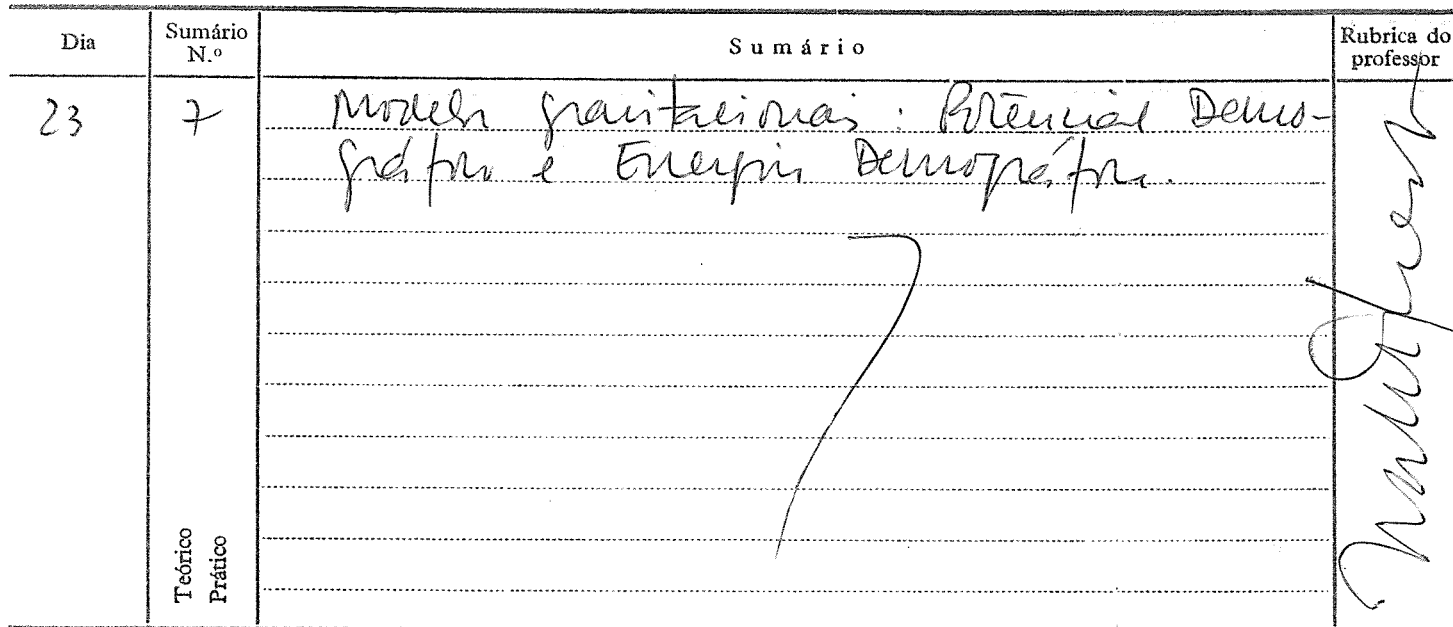 Dia
Sumário N.º
Sumário
Rubrica do professor
23
7
Modelos gravitacionais: Potencial Demo-
gráfico e Energia Demográfica.
Teórico
Prático